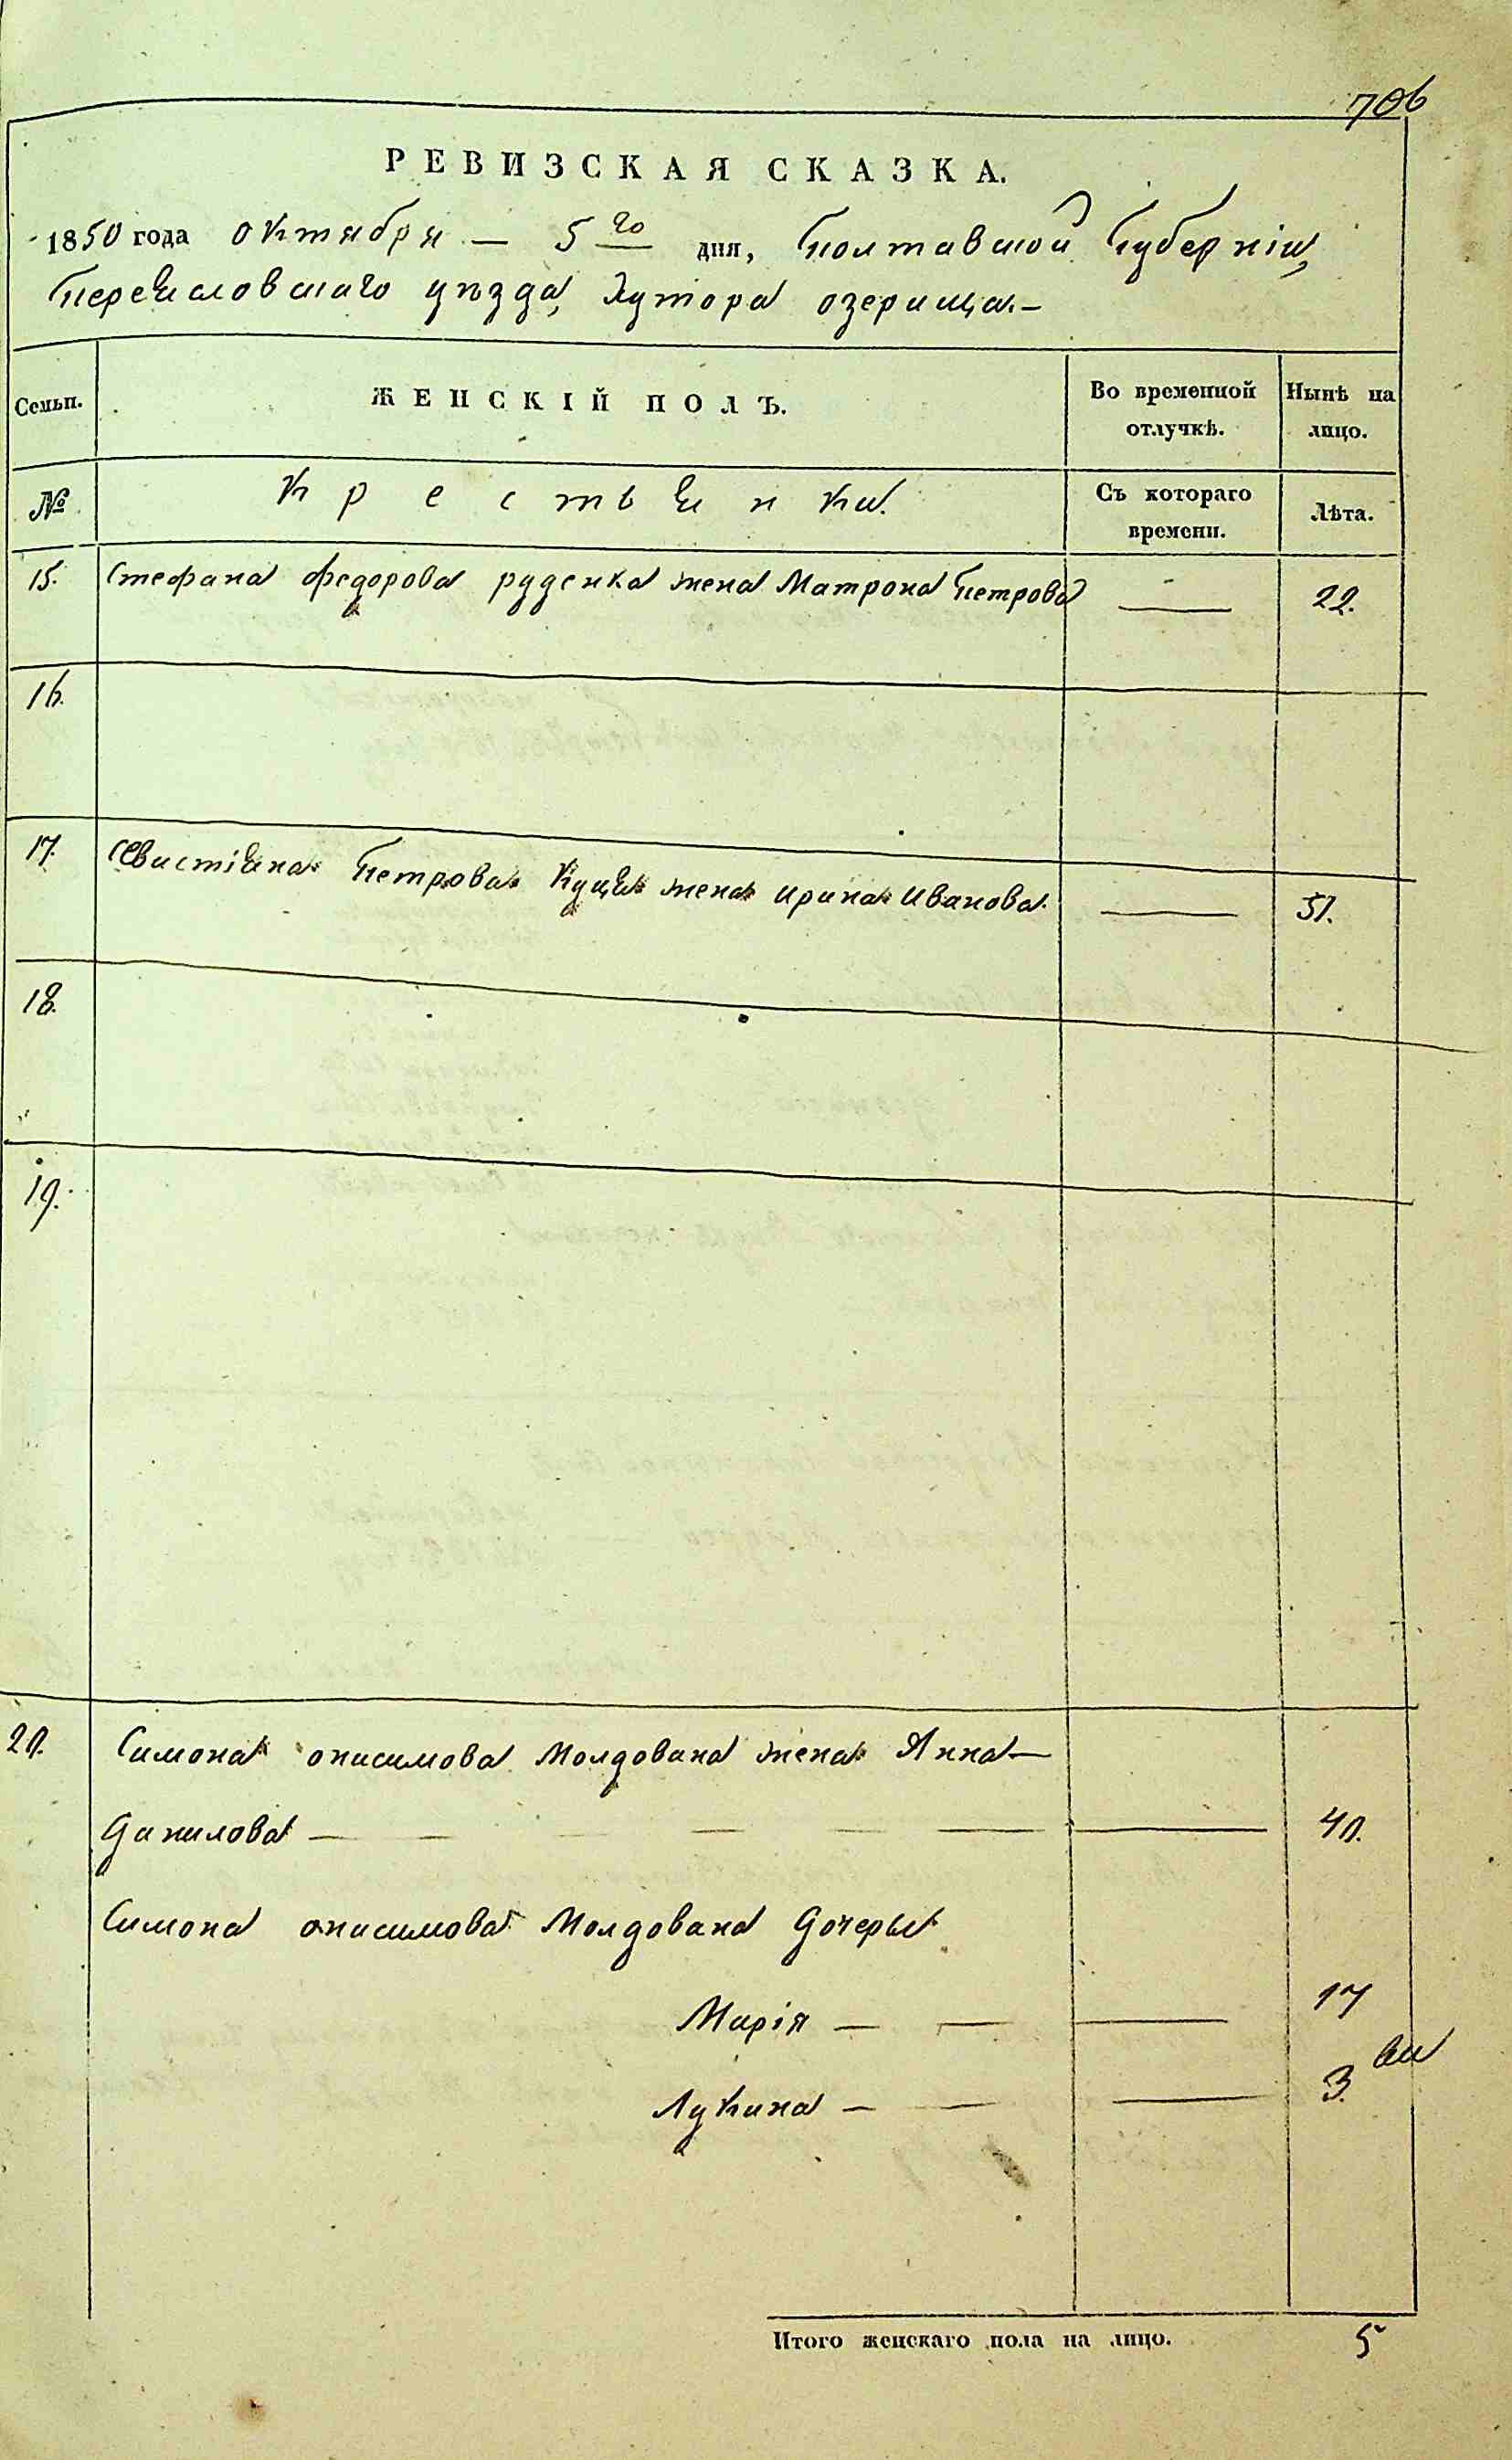 706
РЕВИЗСКАЯ СКАЗКА.
1850 года октября — 5го дня, Полтавской Губерніи,
Переясловскаго уѣзда, Хутора озерища.—
Семьи. ЖЕНСКІЙ ПОЛЪ. Во временной отлучкѣ. Нынѣ на лицо.
№ Крестьянки. Съ котораго времени. Лѣта.
15. Стефана федорова руденка жена Матрона Петрова — 22.
16.
17. Севастіяна Петрова Куця жена ирина иванова. — 51.
18.
19.
20. Симона онисимова Молдована жена Анна—
Данилова — — — — — — 40.
Симона онисимова Молдована Дочеры
Марія — — — 17
Лукина — — — 3.
Итого женскаго пола на лицо. 5